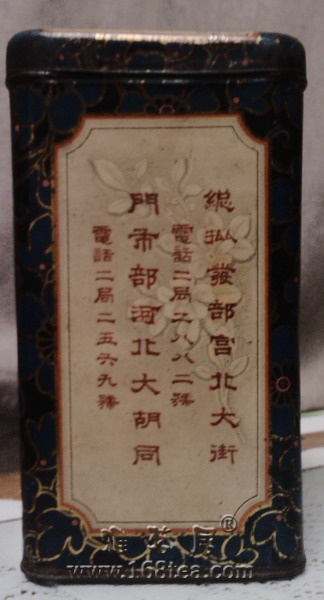 總批發部宮北大街
電話二局二八八二號
門市部河北大胡同
電話二局二五六九號
雅茗居®
www.168tea.com